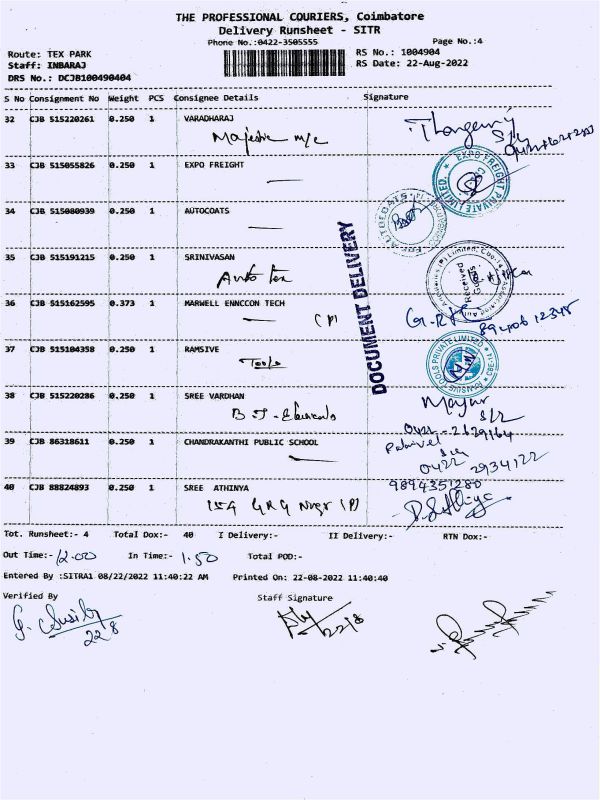 THE PROFESSIONAL COURIERS, Coimbatore
Delivery Runsheet - SITR
Phone No.:0422-3505555 Page No.:4
Route: TEX PARK RS No.: 1004904
Staff: INBARAJ RS Date: 22-Aug-2022
DRS No.: DCJB100490404
S No Consignment No Weight PCS Consignee Details Signature
32 CJB 515220261 0.250 1 VARADHARAJ
Majestic m/c
33 CJB 515055826 0.250 1 EXPO FREIGHT
EXPO FREIGHT PRIVATE LIMITED
34 CJB 515080939 0.250 1 AUTOCOATS
DOCUMENT DELIVERY
35 CJB 515191215 0.250 1 SRINIVASAN
Auto tex
Goods Received
36 CJB 515162595 0.373 1 MARWELL ENNCCON TECH
(P)
37 CJB 515104358 0.250 1 RAMSIVE
Tools
RAMSIVE TOOLS PRIVATE LIMITED
38 CJB 515220286 0.250 1 SREE VARDHAN
39 CJB 86318611 0.250 1 CHANDRAKANTHI PUBLIC SCHOOL
0422 2934122
40 CJB 88824893 0.250 1 SREE ATHINYA
9894351280
Tot. Runsheet:- 4 Total Dox:- 40 I Delivery:- II Delivery:- RTN Dox:-
Out Time:- 12.00 In Time:- 1.50 Total POD:-
Entered By :SITRA1 08/22/2022 11:40:22 AM Printed On: 22-08-2022 11:40:40
Verified By Staff Signature
22/8 22/8